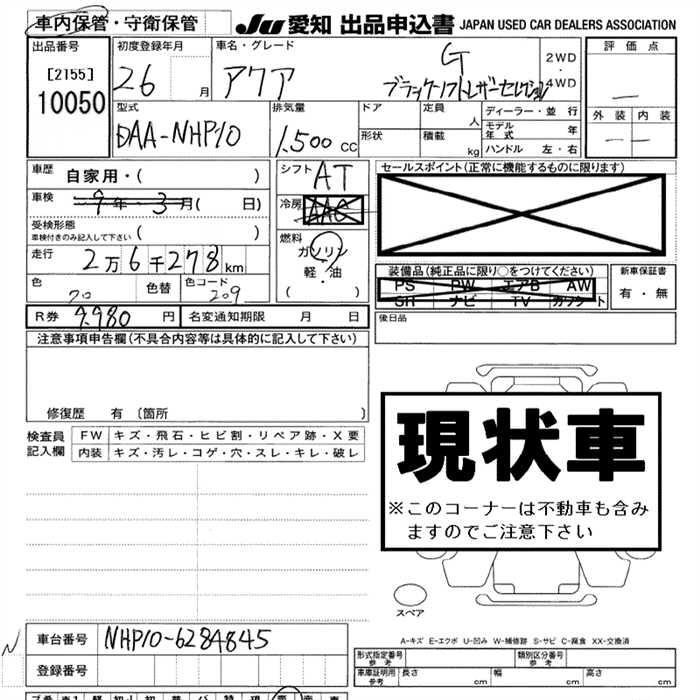 車内保管・守衛保管
JU 愛知 出品申込書 JAPAN USED CAR DEALERS ASSOCIATION
出品番号 初度登録年月 車名・グレード 評価点
[2155] 26 月 アクア G 2WD
10050 ブラックソフトレザーセレクション 4WD
型式 排気量 ドア 定員 人 ディーラー・並行 外装 内装
DAA-NHP10 1.500 CC 形状 積載 kg モデル年式 年
ハンドル 左・右
車歴 自家用・( )
シフト AT
セールスポイント(正常に機能するものに限ります)
車検 9年・3月( 日)
冷房 AAC
受検形態
車検付きのみ記入して下さい ( )
燃料 ガソリン
軽・油
( )
走行 2万6千278km
装備品(純正品に限り○をつけてください) 新車保証書
PS PW エアB AW 有・無
SH ナビ TV カセット
色 色替 色コード
70 209
後日品
R券 9.980 円 名変通知期限 月 日
注意事項申告欄(不具合内容等は具体的に記入して下さい)
修復歴 有〔箇所 〕
現状車
※このコーナーは不動車も含み
ますのでご注意下さい
検査員 FW キズ・飛石・ヒビ割・リペア跡・X要
記入欄 内装 キズ・汚レ・コゲ・穴・スレ・キレ・破レ
スペア
N 車台番号 NHP10-6284845
A-キズ E-エクボ U-凹み W-補修跡 S-サビ C-腐食 XX-交換済
登録番号
形式指定番号 参考 類別区分番号 参考
車庫証明用 参考 長さ cm 幅 cm 高さ cm